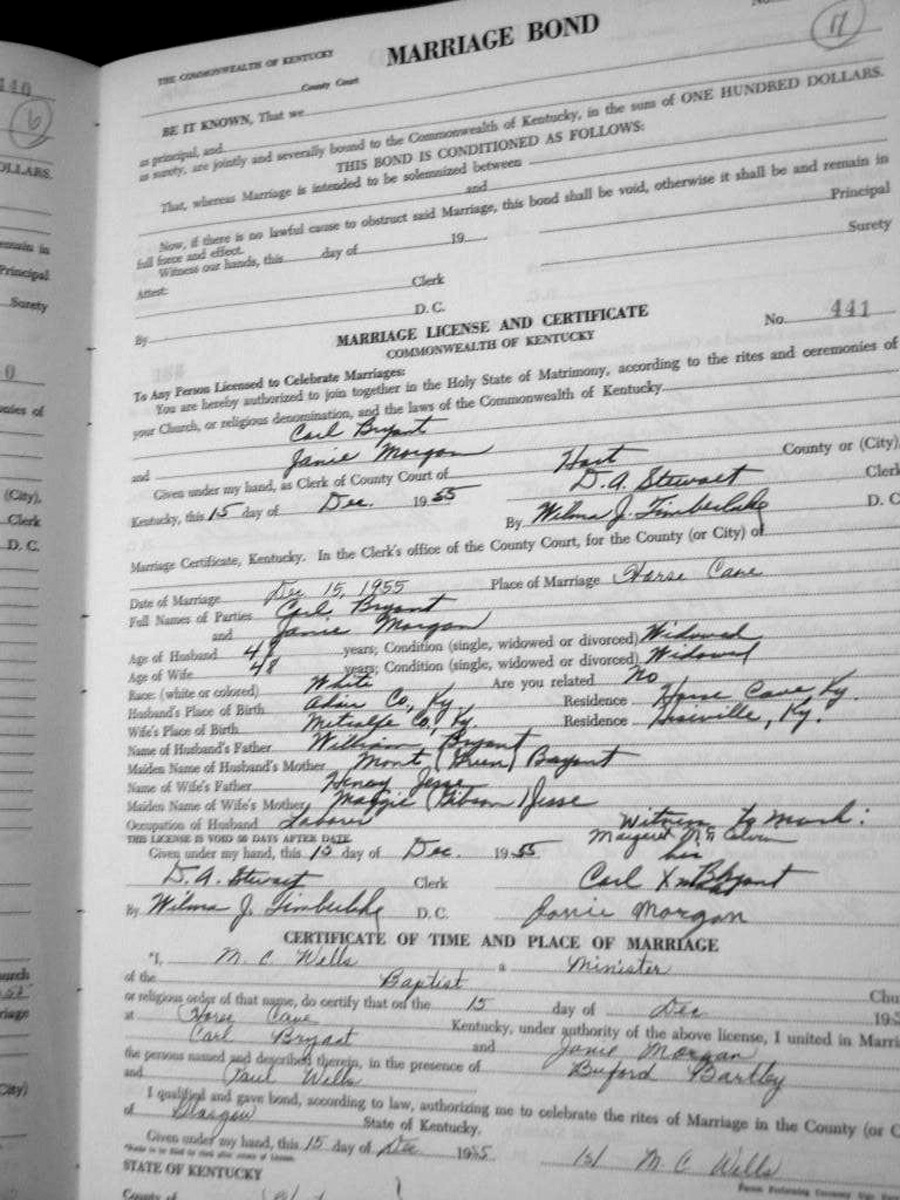 140
6
No.
17
THE COMMONWEALTH OF KENTUCKY
MARRIAGE BOND
County Court
BE IT KNOWN, That we
as principal, and
as surety, are jointly and severally bound to the Commonwealth of Kentucky, in the sum of ONE HUNDRED DOLLARS.
THIS BOND IS CONDITIONED AS FOLLOWS:
That, whereas Marriage is intended to be solemnized between
and
Now, if there is no lawful cause to obstruct said Marriage, this bond shall be void, otherwise it shall be and remain in
full force and effect.
Witness our hands, this day of 19 Principal
Attest: Surety
Clerk
By D. C.
MARRIAGE LICENSE AND CERTIFICATE No. 441
COMMONWEALTH OF KENTUCKY
To Any Person Licensed to Celebrate Marriages:
You are hereby authorized to join together in the Holy State of Matrimony, according to the rites and ceremonies of
your Church, or religious denomination, and the laws of the Commonwealth of Kentucky
Carl Bryant
and Janie Morgan
Given under my hand, as Clerk of County Court of Hart County or (City),
Kentucky, this 15 day of Dec. 19 55 D. A. Stewart Clerk
By Wilma J. Timberlake D. C.
Marriage Certificate, Kentucky. In the Clerk's office of the County Court, for the County (or City) of
Date of Marriage Dec 15, 1955 Place of Marriage Horse Cave
Full Names of Parties Carl Bryant
and Janie Morgan
Age of Husband 48 years; Condition (single, widowed or divorced) Widowed
Age of Wife 48 years; Condition (single, widowed or divorced) Widowed
Race: (white or colored) White Are you related No
Husband's Place of Birth Adair Co, Ky. Residence Horse Cave Ky.
Wife's Place of Birth Metcalfe Co, Ky. Residence Hiseville, Ky.
Name of Husband's Father William Bryant
Maiden Name of Husband's Mother Mont (Green) Bryant
Name of Wife's Father Henry Jesse
Maiden Name of Wife's Mother Maggie (Gibson) Jesse
Occupation of Husband Laborer Witness to Mark:
THIS LICENSE IS VOID 30 DAYS AFTER DATE. Margaret
Given under my hand, this 15 day of Dec. 19 55 his
D. A. Stewart Clerk Carl X Bryant
mark
By Wilma J. Timberlake D. C. Janie Morgan
CERTIFICATE OF TIME AND PLACE OF MARRIAGE
"I, M. C. Wells a Minister
of the Baptist Chu
or religious order of that name, do certify that on the 15 day of Dec 195
at Horse Cave Kentucky, under authority of the above license, I united in Marri
Carl Bryant and Janie Morgan
the persons named and described therein, in the presence of Buford Bartley
and Paul Wells
I qualified and gave bond, according to law, authorizing me to celebrate the rites of Marriage in the County (or C
of Glasgow State of Kentucky.
Given under my hand, this 15 day of Dec 1955 /s/ M. C. Wells
STATE OF KENTUCKY
County of